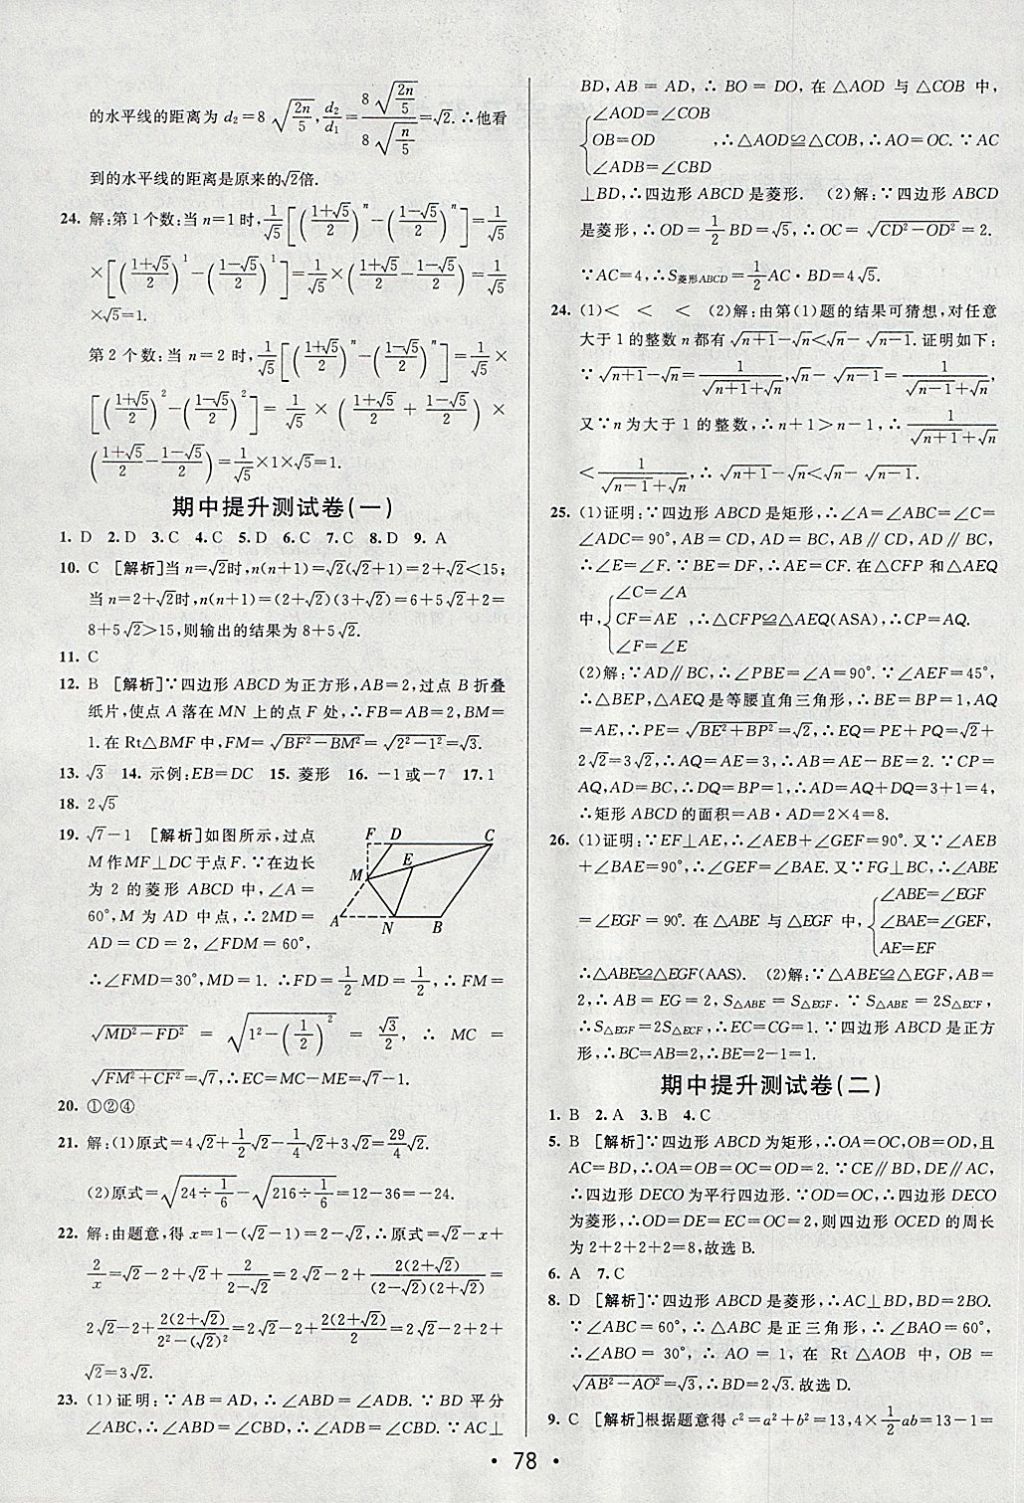 的水平线的距离为 d₂=8√(2n/5), d₂/d₁=8√(2n/5)/8√(n/5)=√2. ∴他看
到的水平线的距离是原来的√2倍.
24. 解:第 1 个数:当 n=1 时, 1/√5[((1+√5)/2)ⁿ-((1-√5)/2)ⁿ]=1/√5
×[((1+√5)/2)¹-((1-√5)/2)¹]=1/√5×((1+√5)/2-(1-√5)/2)=1/√5
×√5=1.
第 2 个数:当 n=2 时, 1/√5[((1+√5)/2)ⁿ-((1-√5)/2)ⁿ]=1/√5×
[((1+√5)/2)²-((1-√5)/2)²]=1/√5×((1+√5)/2+(1-√5)/2)×
((1+√5)/2-(1-√5)/2)=1/√5×1×√5=1.
期中提升测试卷(一)
1. D 2. D 3. C 4. C 5. D 6. C 7. C 8. D 9. A
10. C [解析]当 n=√2时,n(n+1)=√2(√2+1)=2+√2<15;
当 n=2+√2时,n(n+1)=(2+√2)(3+√2)=6+5√2+2=
8+5√2>15,则输出的结果为 8+5√2.
11. C
12. B [解析]∵四边形 ABCD 为正方形,AB=2,过点 B 折叠
纸片,使点 A 落在 MN 上的点 F 处,∴FB=AB=2,BM=
1.在 Rt△BMF 中,FM=√(BF²-BM²)=√(2²-1²)=√3.
13. √3 14. 示例:EB=DC 15. 菱形 16. -1或-7 17. 1
18. 2√5
19. √7-1 [解析]如图所示,过点
M 作 MF⊥DC 于点 F. ∵在边长
为 2 的菱形 ABCD 中,∠A=
60°,M 为 AD 中点,∴2MD=
AD=CD=2,∠FDM=60°,
F D C
M E
A N B
∴∠FMD=30°,MD=1. ∴FD=1/2MD=1/2. ∴FM=
√(MD²-FD²)=√(1²-(1/2)²)=√3/2. ∴MC=
√(FM²+CF²)=√7,∴EC=MC-ME=√7-1.
20. ①②④
21. 解:(1)原式=4√2+1/2√2-1/4√2+3√2=29/4√2.
(2)原式=√(24÷1/6)-√(216÷1/6)=12-36=-24.
22. 解:由题意,得 x=1-(√2-1)=2-√2,∴原式=√2-x+
2/x=√2-2+√2+2/(2-√2)=2√2-2+2(2+√2)/((2-√2)(2+√2))=
2√2-2+2(2+√2)/(2²-(√2)²)=2√2-2+2(2+√2)/2=2√2-2+2+
√2=3√2.
23. (1)证明:∵AB=AD,∴∠ABD=∠ADB. ∵BD 平分
∠ABC,∴∠ABD=∠CBD,∴∠ADB=∠CBD. ∵AC⊥
BD,AB=AD,∴BO=DO,在△AOD 与△COB 中,
{∠AOD=∠COB
OB=OD ,∴△AOD≌△COB,∴AO=OC. ∵AC
∠ADB=∠CBD
⊥BD,∴四边形 ABCD 是菱形. (2)解:∵四边形 ABCD
是菱形,∴OD=1/2BD=√5,∴OC=√(CD²-OD²)=2.
∵AC=4,∴S菱形ABCD=1/2AC·BD=4√5.
24. (1)< < < (2)解:由第(1)题的结果可猜想,对任意
大于 1 的整数 n 都有√(n+1)-√n<√n-√(n-1).证明如下:
∵√(n+1)-√n=1/(√(n+1)+√n),√n-√(n-1)=1/(√(n-1)+√n),
又∵n 为大于 1 的整数,∴n+1>n-1,∴1/(√(n+1)+√n)
<1/(√(n-1)+√n),∴√(n+1)-√n<√n-√(n-1).
25. (1)证明:∵四边形 ABCD 是矩形,∴∠A=∠ABC=∠C=
∠ADC=90°,AB=CD,AD=BC,AB∥CD,AD∥BC,
∴∠E=∠F. ∵BE=DF,∴AE=CF.在△CFP 和△AEQ
中,{∠C=∠A
CF=AE ,∴△CFP≌△AEQ(ASA),∴CP=AQ.
∠F=∠E
(2)解:∵AD∥BC,∴∠PBE=∠A=90°. ∵∠AEF=45°,
∴△BEP,△AEQ 是等腰直角三角形,∴BE=BP=1,AQ
=AE,∴PE=√(BE²+BP²)=√2,∴EQ=PE+PQ=√2+
2√2=3√2,∴AQ=AE=3,∴AB=AE-BE=2. ∵CP=
AQ,AD=BC,∴DQ=BP=1,∴AD=AQ+DQ=3+1=4,
∴矩形 ABCD 的面积=AB·AD=2×4=8.
26. (1)证明:∵EF⊥AE,∴∠AEB+∠GEF=90°.又∵∠AEB
+∠BAE=90°,∴∠GEF=∠BAE.又∵FG⊥BC,∴∠ABE
=∠EGF=90°.在△ABE 与△EGF 中,{∠ABE=∠EGF
∠BAE=∠GEF,
AE=EF
∴△ABE≌△EGF(AAS). (2)解:∵△ABE≌△EGF,AB=
2,∴AB=EG=2,S△ABE=S△EGF. ∵S△ABE=2S△ECF,
∴S△EGF=2S△ECF,∴EC=CG=1. ∵四边形 ABCD 是正方
形,∴BC=AB=2,∴BE=2-1=1.
期中提升测试卷(二)
1. B 2. A 3. B 4. C
5. B [解析]∵四边形 ABCD 为矩形,∴OA=OC,OB=OD,且
AC=BD,∴OA=OB=OC=OD=2. ∵CE∥BD,DE∥AC,
∴四边形 DECO 为平行四边形. ∵OD=OC,∴四边形 DECO
为菱形,∴OD=DE=EC=OC=2,则四边形 OCED 的周长
为 2+2+2+2=8,故选 B.
6. A 7. C
8. D [解析]∵四边形 ABCD 是菱形,∴AC⊥BD,BD=2BO.
∵∠ABC=60°,∴△ABC 是正三角形,∴∠BAO=60°,
∴∠ABO=30°,∴AO=1,在 Rt△AOB 中,OB=
√(AB²-AO²)=√3,∴BD=2√3.故选 D.
9. C [解析]根据题意得 c²=a²+b²=13,4×1/2ab=13-1=
• 78 •